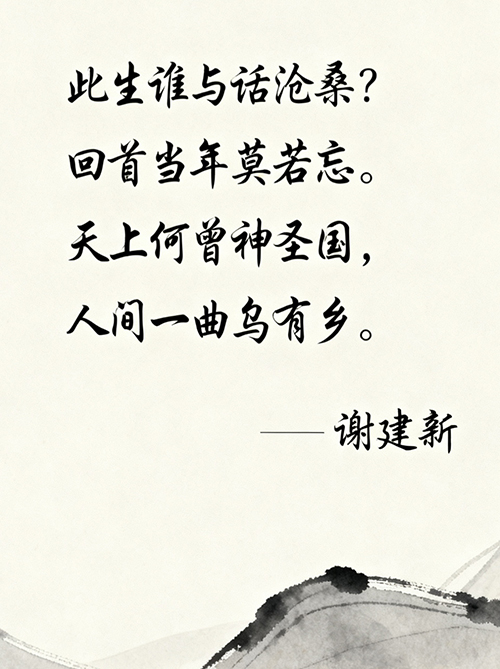 此生谁与话沧桑?
回首当年莫若忘。
天上何曾神圣国，
人间一曲乌有乡。
——谢建新